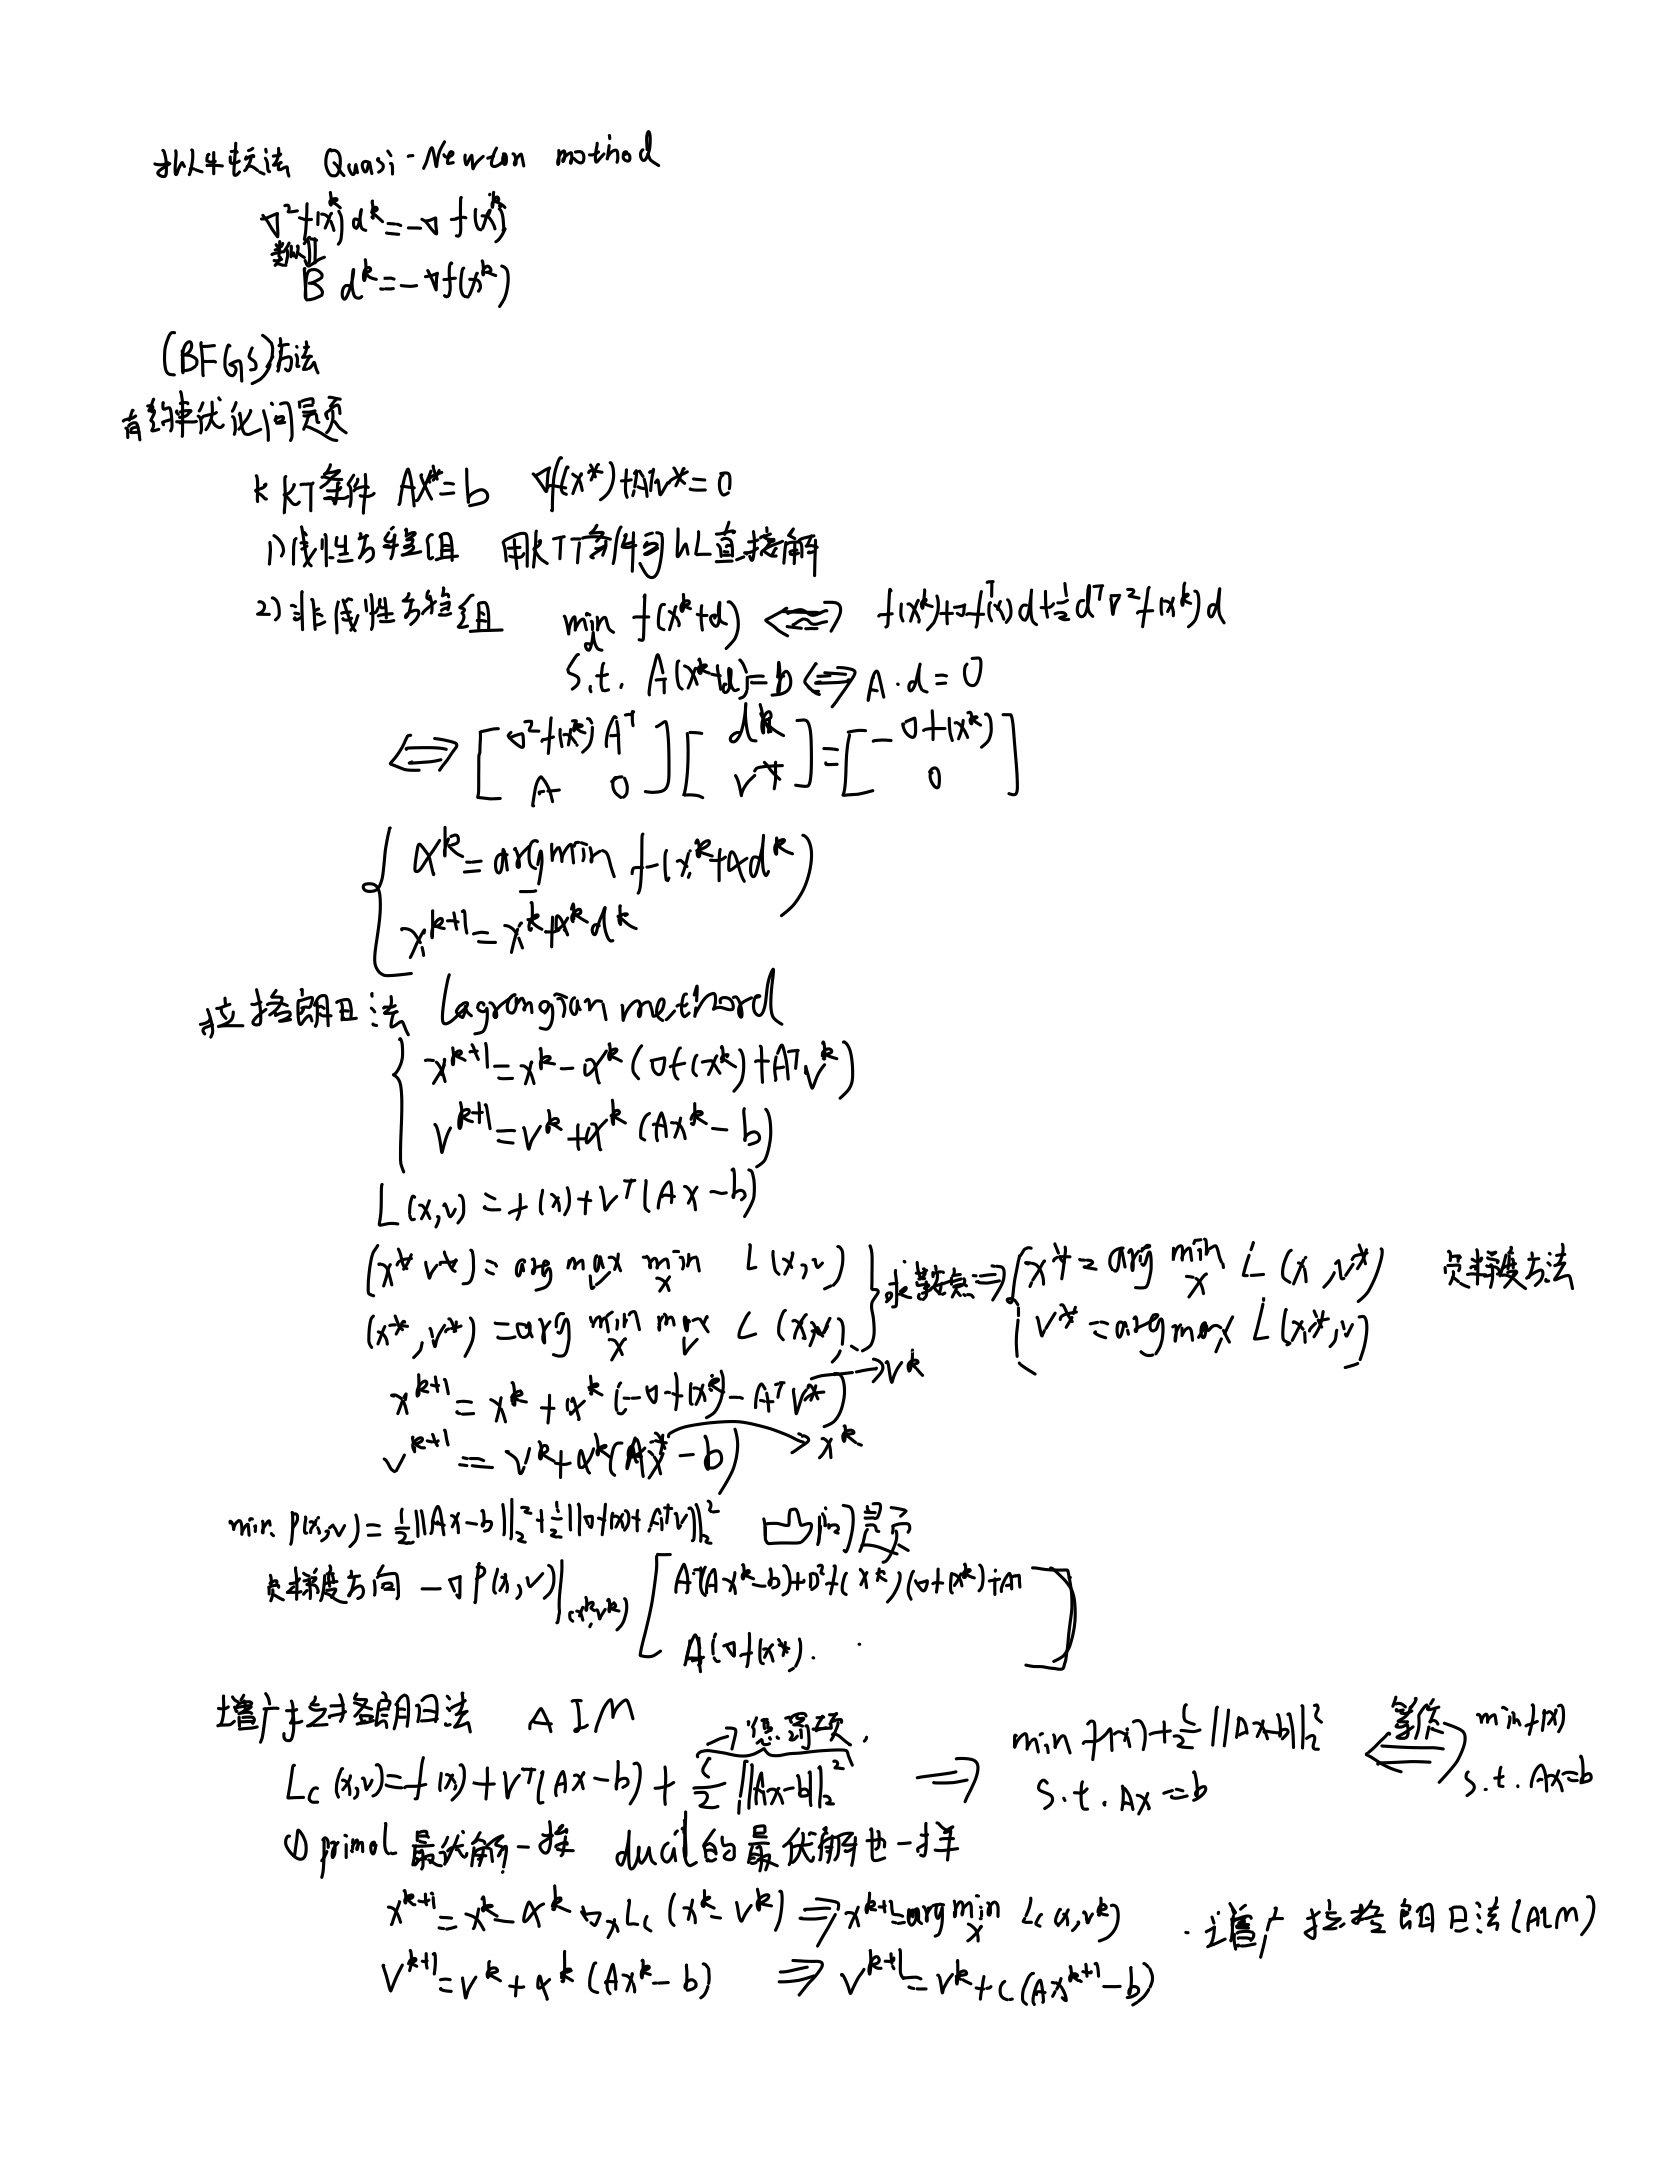 拟牛顿法 Quasi-Newton mothod
∇²f(x^k) d^k = -∇f(x^k)
B d^k = -∇f(x^k)
(BFGS)方法
有约束优化问题
KKT条件 Ax* = b ∇f(x*)+Aᵀv* = 0
1)线性方程组 用KTT条件可以直接解
2)非线性方程组 min_d f(x^k+d) ⇔ f(x^k)+∇fᵀ(x)d+½dᵀ∇²f(x^k)d
s.t. A(x^k+d)=b ⇔ A·d=0
⇔ [∇²f(x^k) Aᵀ; A 0][d^k; v*] = [-∇f(x^k); 0]
α^k = argmin f(x^k+αd^k)
x^{k+1} = x^k+α^k d^k
拉格朗日法 Lagrangian methord
x^{k+1} = x^k - α^k(∇f(x^k)+Aᵀv^k)
v^{k+1} = v^k+α^k(Ax^k - b)
L(x,v) = f(x)+vᵀ(Ax-b)
(x* v*) = arg max_v min_x L(x,v) } 求鞍点 ⇒ { x* = arg min_x L(x,v*) 负梯度方法
(x*,v*) = arg min_x max_v L(x,v) v* = arg max L(x*,v)
x^{k+1} = x^k + α^k(-∇f(x^k) - Aᵀv*) → v^k
v^{k+1} = v^k+α^k(Ax* - b) → x^k
min P(x,v) = ½||Ax-b||₂²+½||∇f(x)+Aᵀv||₂² 凸问题
负梯度方向 -∇P(x,v)|(x^k,v^k) [Aᵀ(Ax^k-b)+∇²f(x^k)(∇f(x^k)+A
A(∇f(x*).
增广拉格朗日法 AIM
→惩罚项.
L_c(x,v)=f(x)+vᵀ(Ax-b)+c/2||Ax-b||₂² ⇒ min f(x)+c/2||Ax-b||₂² 等价 ⇔ min f(x)
s.t. Ax=b s.t. Ax=b
① primal 最优解一样 dual的最优解也一样
x^{k+1} = x^k - α^k ∇_x L_c(x^k, v^k) ⇒ x^{k+1} = argmin_x L_c(x,v^k) · 增广拉格朗日法(ALM)
v^{k+1} = v^k + α^k(Ax^k - b) ⇒ v^{k+1} = v^k+c(Ax^{k+1}-b)